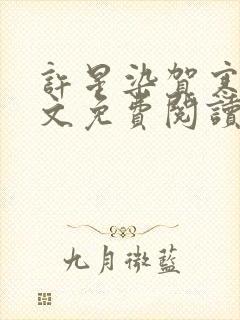 許星染賀寒
文免費閱讀
九月微藍